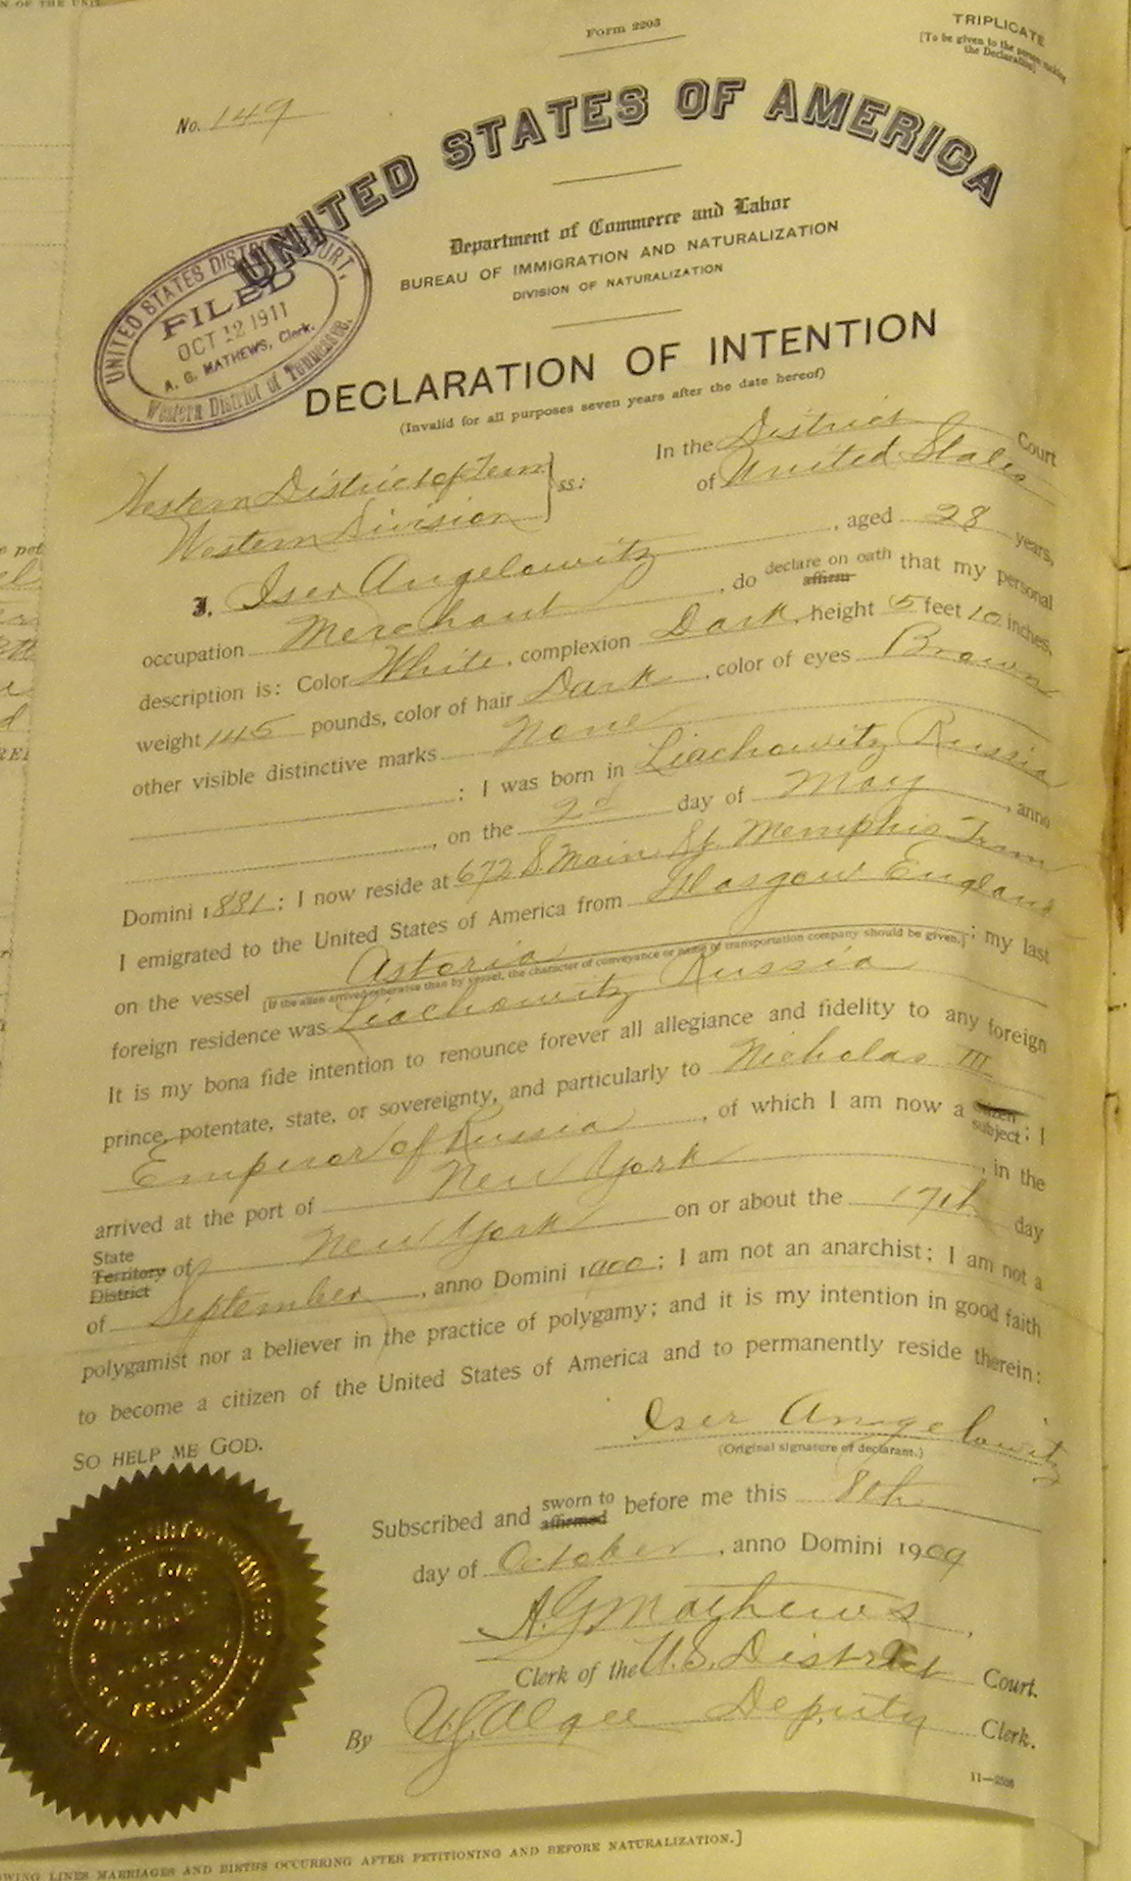 Form 2203
TRIPLICATE
[To be given to the person making
the Declaration]
No. 149
UNITED STATES OF AMERICA
Department of Commerce and Labor
BUREAU OF IMMIGRATION AND NATURALIZATION
DIVISION OF NATURALIZATION
UNITED STATES DISTRICT COURT,
FILED
OCT 12 1911
A. G. MATHEWS, Clerk.
Western District of Tennessee.
DECLARATION OF INTENTION
(Invalid for all purposes seven years after the date hereof)
Western District of Tenn
Western Division
ss:
In the District Court
of United States
I, Iser Angelowitz, aged 28 years,
occupation Merchant, do declare on oath affirm that my personal
description is: Color White, complexion Dark, height 5 feet 10 inches,
weight 145 pounds, color of hair Dark, color of eyes Brown
other visible distinctive marks None
: I was born in Liachowitz Russia
, on the 2d day of May, anno
Domini 1881: I now reside at 672 S. Main St. Memphis Tenn
I emigrated to the United States of America from Glasgow England
on the vessel Astoria; my last
[If the alien arrived otherwise than by vessel, the character of conveyance or name of transportation company should be given.]
foreign residence was Liachowitz Russia
It is my bona fide intention to renounce forever all allegiance and fidelity to any foreign
prince, potentate, state, or sovereignty, and particularly to Nicholas III
Emperor of Russia, of which I am now a citizen subject; I
arrived at the port of New York, in the
State Territory District of New York on or about the 17th day
of September, anno Domini 1900; I am not an anarchist; I am not a
polygamist nor a believer in the practice of polygamy; and it is my intention in good faith
to become a citizen of the United States of America and to permanently reside therein:
SO HELP ME GOD.
Iser Angelowitz
(Original signature of declarant.)
Subscribed and sworn to affirmed before me this 8th
day of October, anno Domini 1909
A.G. Mathews,
Clerk of the U.S. District Court.
By Deputy Clerk.
LOWING LINES MARRIAGES AND BIRTHS OCCURRING AFTER PETITIONING AND BEFORE NATURALIZATION.]